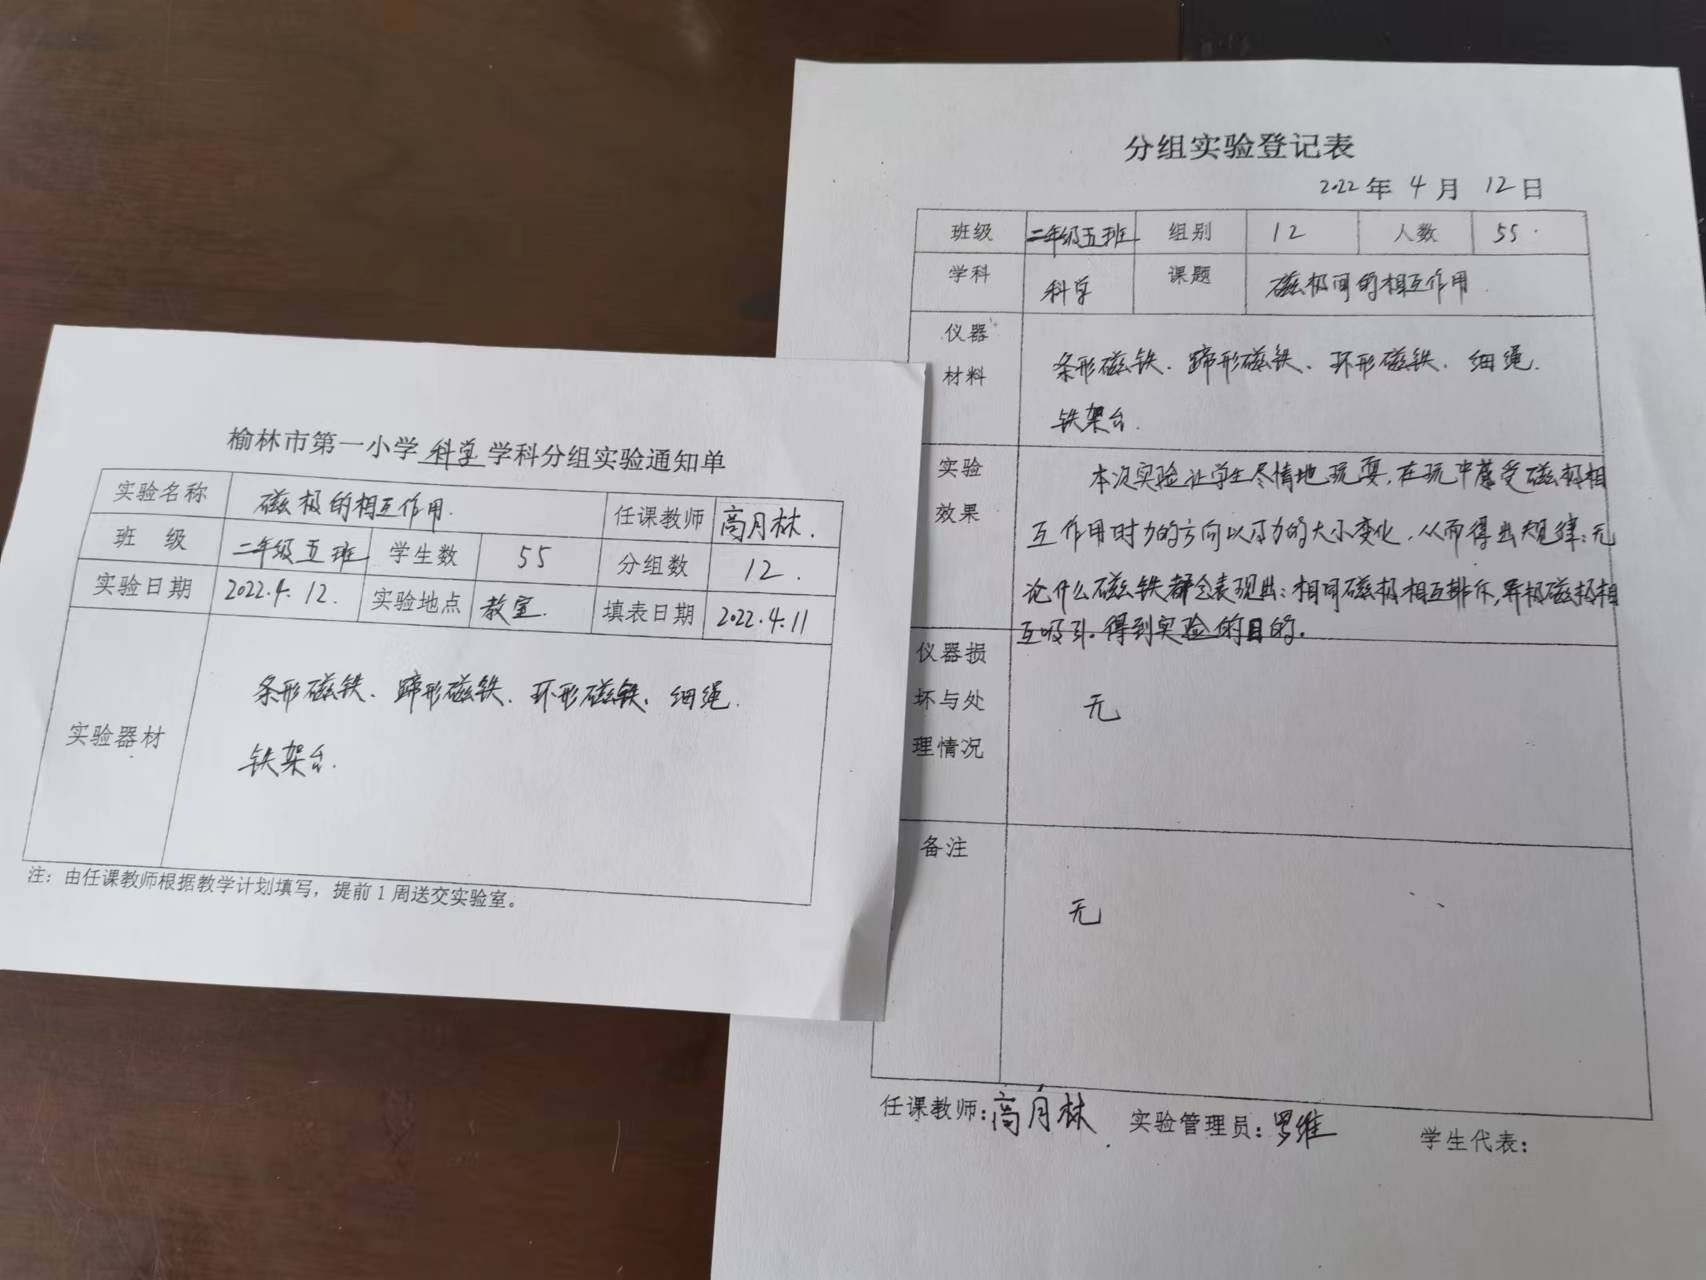 榆林市第一小学 科学 学科分组实验通知单
实验名称 磁极的相互作用. 任课教师 高月林.
班 级 二年级五班 学生数 55 分组数 12.
实验日期 2022.4.12. 实验地点 教室. 填表日期 2022.4.11
实验器材
条形磁铁、蹄形磁铁、环形磁铁、细绳.
铁架台.
注：由任课教师根据教学计划填写，提前1周送交实验室。
分组实验登记表
2022年 4月 12日
班级 二年级五班 组别 12 人数 55.
学科 科学 课题 磁极间的相互作用
仪器
材料
条形磁铁、蹄形磁铁、环形磁铁、细绳.
铁架台.
实验
效果
本次实验让学生尽情地玩耍，在玩中感受磁极相
互作用时力的方向以及力的大小变化，从而得出规律：无
论什么磁铁都会表现出：相同磁极相互排斥，异极磁极相
互吸引。得到实验的目的。
仪器损
坏与处
理情况
无
备注
无
任课教师：高月林 实验管理员：罗维 学生代表：